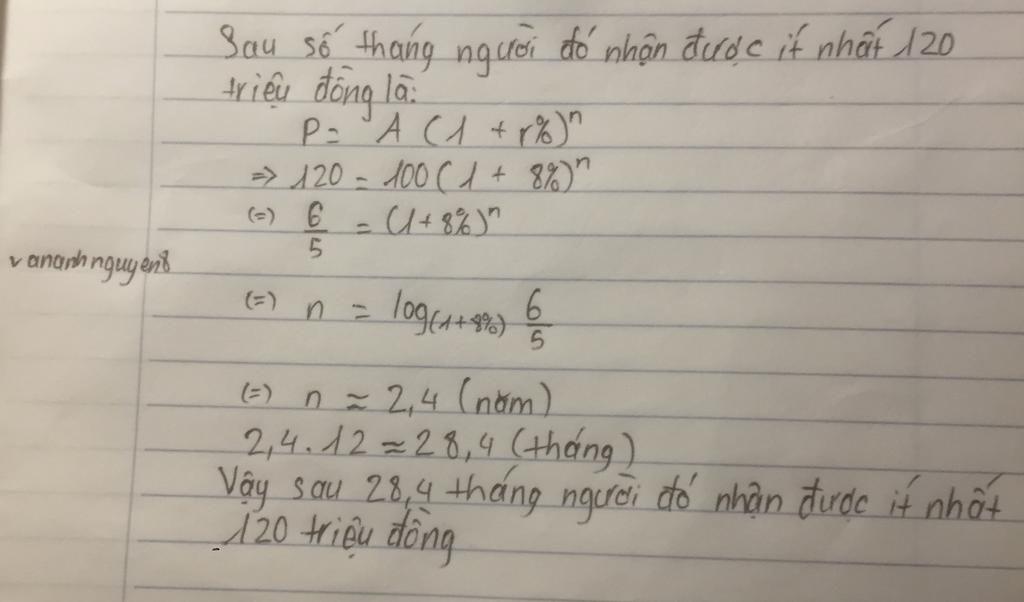 Sau số tháng người đó nhận được ít nhất 120
triệu đồng là:
P = A (1 + r%)ⁿ
=> 120 = 100 (1 + 8%)ⁿ
(=) 6/5 = (1+8%)ⁿ
vananhnguyen8
(=) n = log₍₁₊₈%₎ 6/5
(=) n ≈ 2,4 (năm)
2,4 . 12 ≈ 28,4 (tháng)
Vậy sau 28,4 tháng người đó nhận được ít nhất
120 triệu đồng